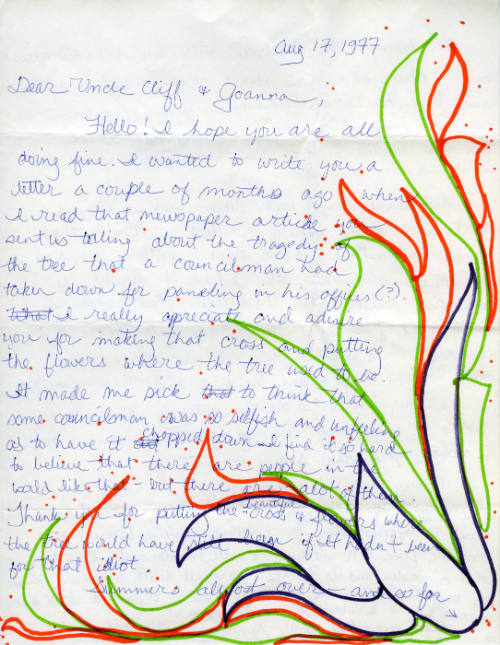 Aug 17, 1977
Dear Uncle Cliff & Joanna,
Hello! I hope you are all
doing fine. I wanted to write you a
letter a couple of months ago when
I read that newspaper article you
sent us talling about the tragedy of
the tree that a councilsman had
taken down for paneling in his offices(?).
I really apreciate and admire
you for making that cross and putting
the flowers where the tree used to be.
It made me sick to think that
some councilsman was so selfish and unfeeling
as to have it chopped down. I find it so hard
to believe that there are people in the
world like that - but there are alot of them.
Thank you for putting the beautiful cross & flowers where
the tree would have still been if it hadn't been
for that idiot.
Summers almost over and so far